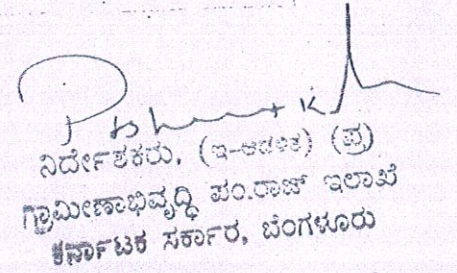 ನಿರ್ದೇಶಕರು, (ಇ-ಆಡಳಿತ) (ಪ್ರ)
ಗ್ರಾಮೀಣಾಭಿವೃದ್ಧಿ ಪಂ.ರಾಜ್ ಇಲಾಖೆ
ಕರ್ನಾಟಕ ಸರ್ಕಾರ, ಬೆಂಗಳೂರು